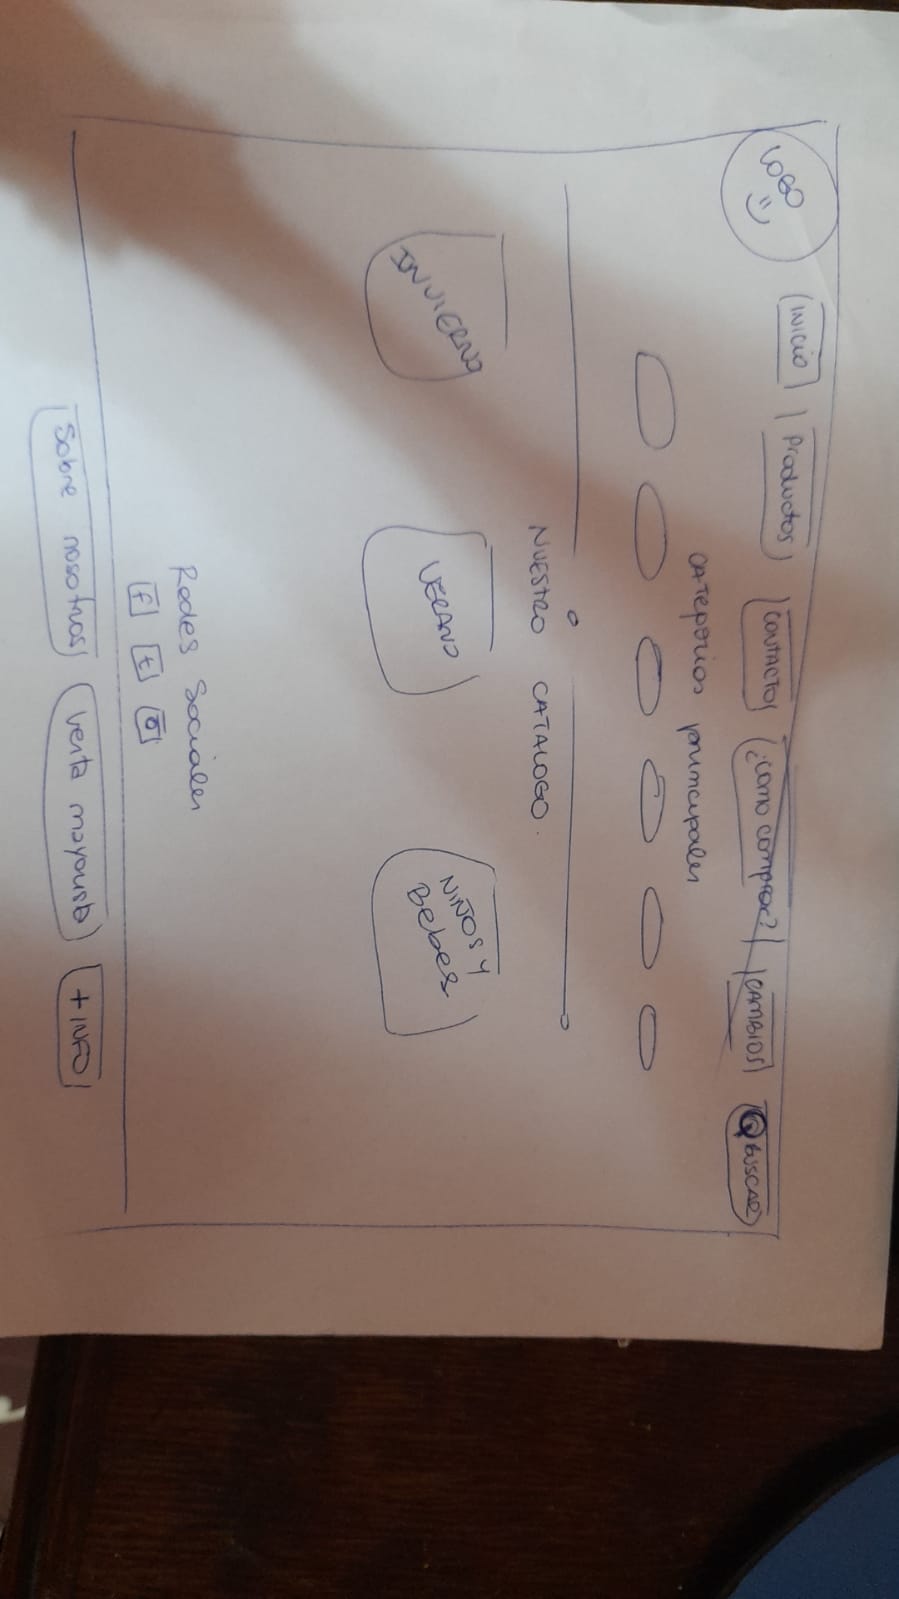 LOGO
INICIO
Productos
CONTACTO
¿como comprar?
CAMBIOS
BUSCAR
CATEgorias principales
NUESTRO CATALOGO.
INVIERNO
VERANO
NIÑOS Y
Bebes
Redes Sociales
f t
Sobre nosotros
Venta mayorista
+ INFO